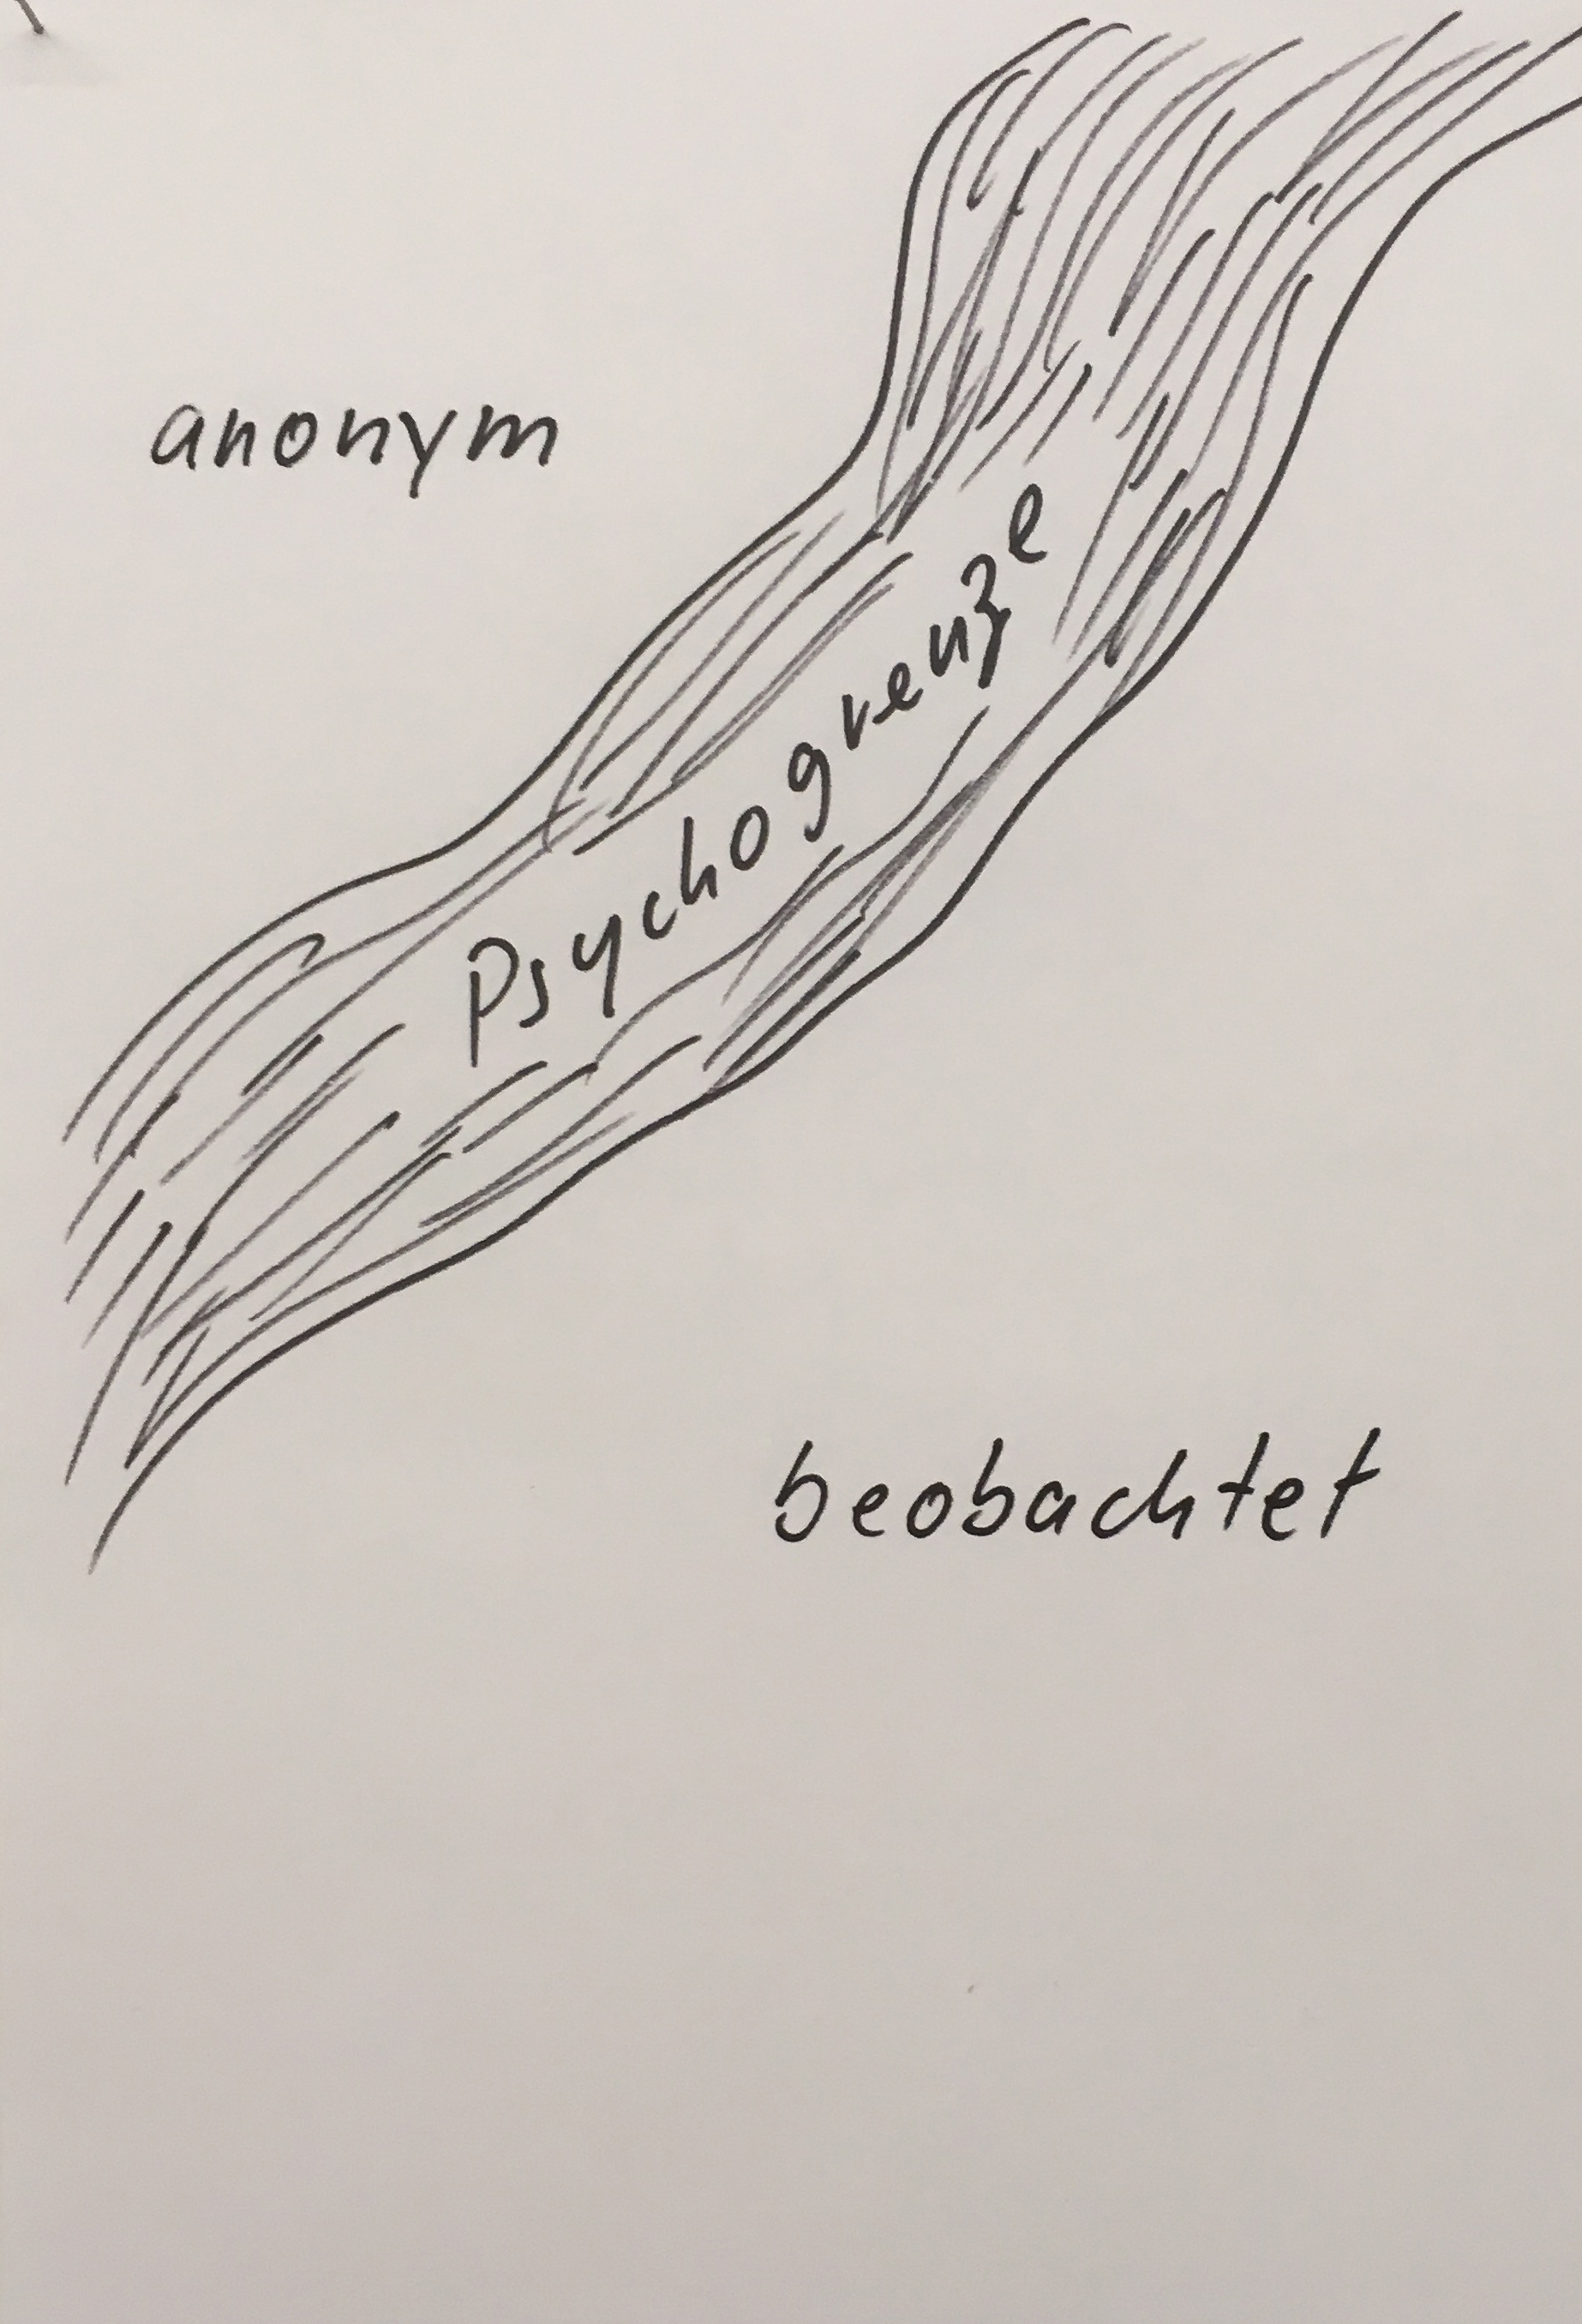 anonym
Psychogrenze
beobachtet